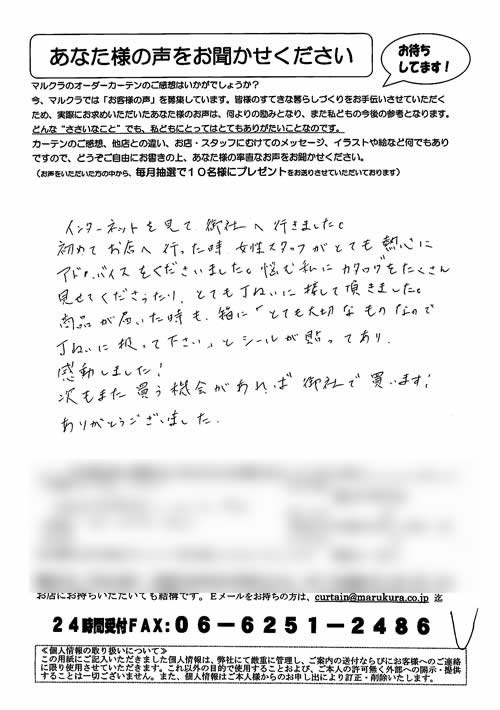 あなた様の声をお聞かせください
お待ち
してます！
マルクラのオーダーカーテンのご感想はいかがでしょうか？
今、マルクラでは「お客様の声」を募集しています。皆様のすてきな暮らしづくりをお手伝いさせていただく
ため、実際にお求めいただいたあなた様のお声は、何よりの励みとなり、また私どもの今後の参考となります。
どんな“ささいなこと”でも、私どもにとってはとてもありがたいことなのです。
カーテンのご感想、他店との違い、お店・スタッフにむけてのメッセージ、イラストや絵など何でもあり
ですので、どうぞご自由にお書きの上、あなた様の率直なお声をお聞かせください。
（お声をいただいた方の中から、毎月抽選で１０名様にプレゼントをお送りさせていただいております）
インターネットを見て御社へ行きました。
初めてお店へ行った時女性スタッフがとても熱心に
アドバイスをくださいました。悩む私にカタログをたくさん
見せてくださったり、とても丁ねいに接して頂きました。
商品が届いた時も、箱に「とても大切なものなので
丁ねいに扱って下さい」とシールが貼ってあり、
感動しました！
次もまた買う機会があれば御社で買います！
ありがとうございました。
お店にお持ちいただいても結構です。Ｅメールをお持ちの方は、curtain@marukura.co.jp 迄
２４時間受付ＦＡＸ：０６－６２５１－２４８６
≪個人情報の取り扱いについて≫
この用紙にご記入いただきました個人情報は、弊社にて厳重に管理し、ご案内の送付ならびにお客様へのご連絡
に限り使用させていただきます。これ以外の目的で使用することおよび、ご本人の許可無く外部への開示・提供
することは一切ございません。また、個人情報はご本人様からのお申し出により訂正・削除いたします。